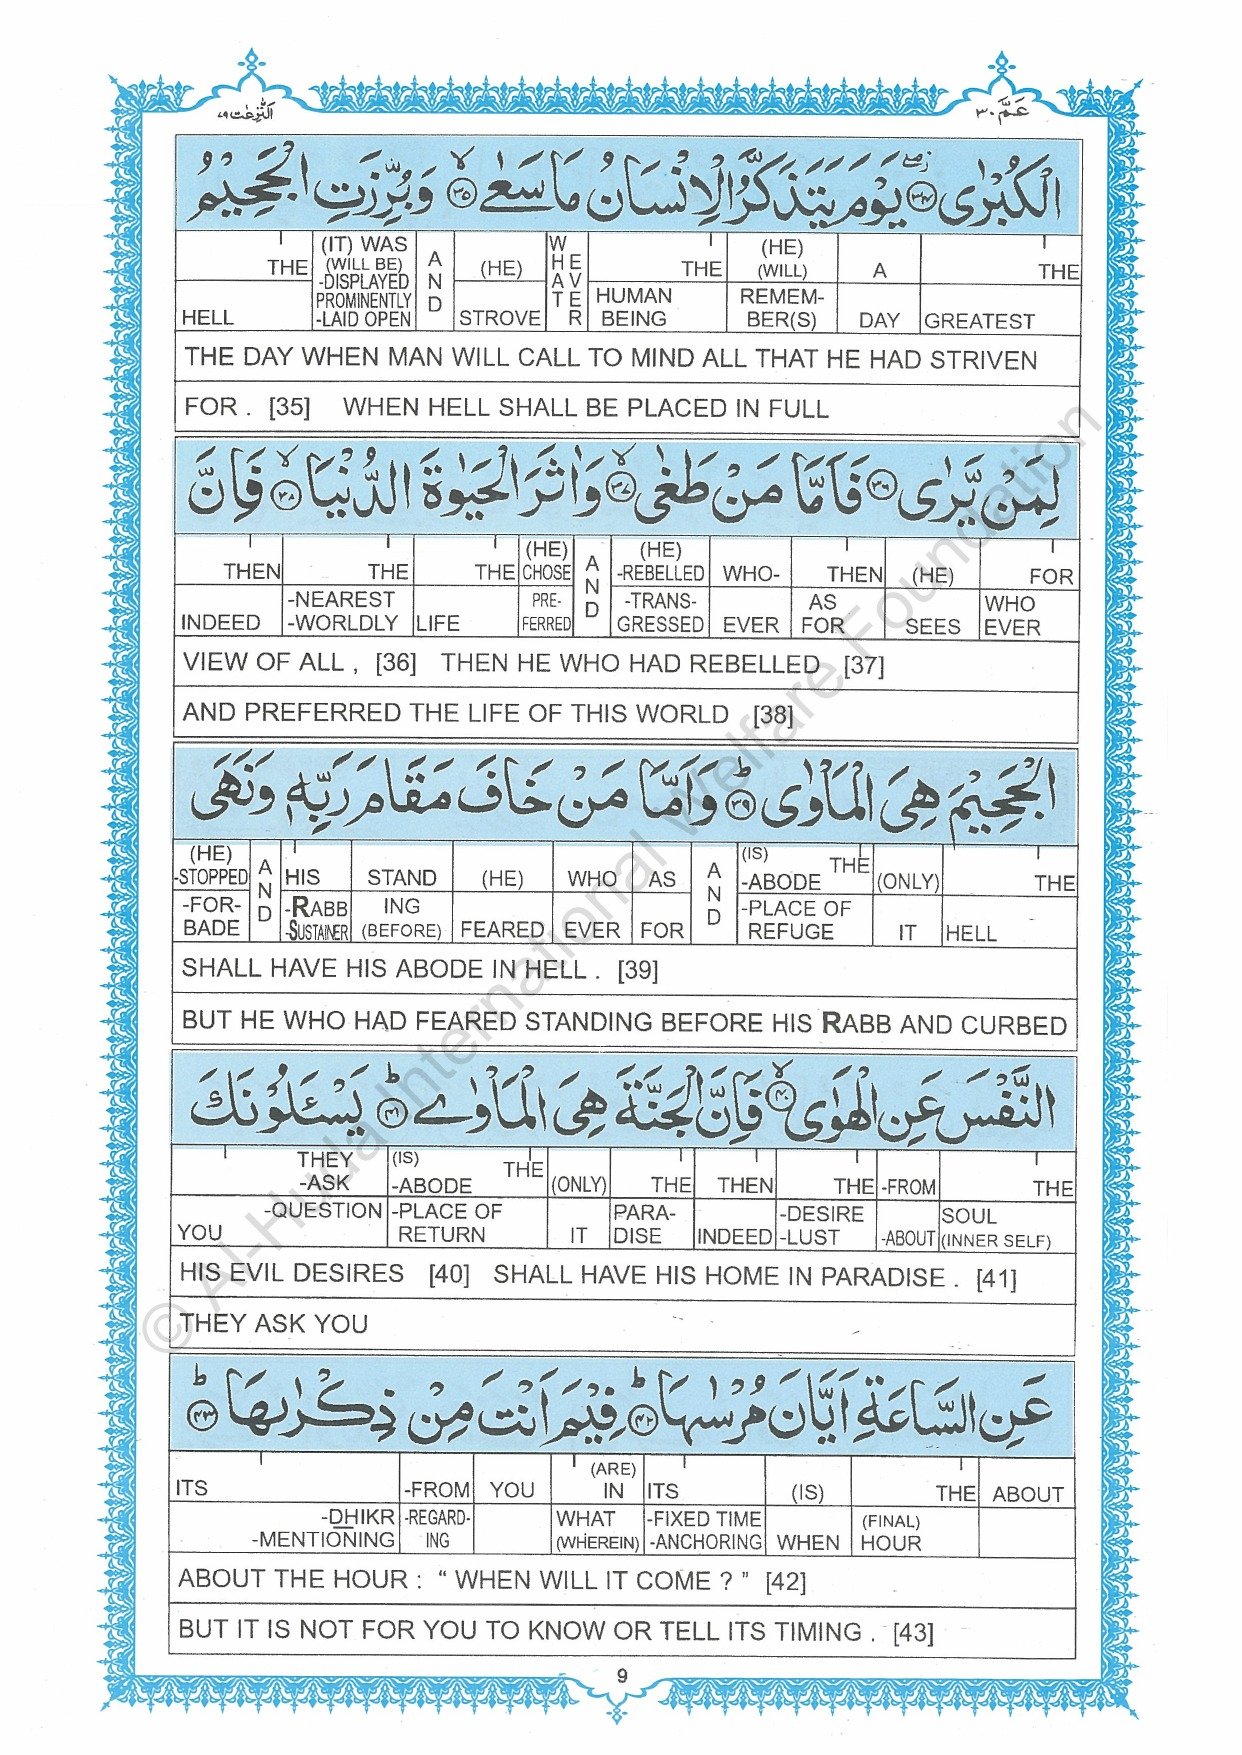 النّٰزعٰت ٧٩
عمّ ٣٠
الْكُبْرٰى ۝٣٤ يَوْمَ يَتَذَكَّرُ الْاِنْسَانُ مَا سَعٰى ۝٣٥ وَبُرِّزَتِ الْجَحِيْمُ
THE (IT) WAS (WILL BE) -DISPLAYED PROMINENTLY -LAID OPEN AND (HE) WHATEVER THE (HE) (WILL) A THE
HELL STROVE HUMAN BEING REMEM-BER(S) DAY GREATEST
THE DAY WHEN MAN WILL CALL TO MIND ALL THAT HE HAD STRIVEN
FOR . [35] WHEN HELL SHALL BE PLACED IN FULL
لِمَنْ يَّرٰى ۝٣٦ فَاَمَّا مَنْ طَغٰى ۝٣٧ وَاٰثَرَ الْحَيٰوةَ الدُّنْيَا ۝٣٨ فَاِنَّ
THEN THE THE (HE) CHOSE AND (HE) -REBELLED WHO- THEN (HE) FOR
INDEED -NEAREST -WORLDLY LIFE PRE-FERRED -TRANS-GRESSED EVER AS FOR SEES WHO EVER
VIEW OF ALL , [36] THEN HE WHO HAD REBELLED [37]
AND PREFERRED THE LIFE OF THIS WORLD [38]
الْجَحِيْمَ هِيَ الْمَاْوٰى ۝٣٩ وَاَمَّا مَنْ خَافَ مَقَامَ رَبِّهٖ وَنَهَى
(HE) -STOPPED AND HIS STAND (HE) WHO AS AND (IS) THE -ABODE (ONLY) THE
-FOR-BADE -RABB -SUSTAINER ING (BEFORE) FEARED EVER FOR -PLACE OF REFUGE IT HELL
SHALL HAVE HIS ABODE IN HELL . [39]
BUT HE WHO HAD FEARED STANDING BEFORE HIS RABB AND CURBED
النَّفْسَ عَنِ الْهَوٰى ۝٤٠ فَاِنَّ الْجَنَّةَ هِيَ الْمَاْوٰى ۝٤١ يَسْـَٔلُوْنَكَ
THEY -ASK (IS) THE -ABODE (ONLY) THE THEN THE -FROM THE
YOU -QUESTION -PLACE OF RETURN IT PARA-DISE INDEED -DESIRE -LUST -ABOUT SOUL (INNER SELF)
HIS EVIL DESIRES [40] SHALL HAVE HIS HOME IN PARADISE . [41]
THEY ASK YOU
عَنِ السَّاعَةِ اَيَّانَ مُرْسٰىهَا ۝٤٢ فِيْمَ اَنْتَ مِنْ ذِكْرٰىهَا ۝٤٣
ITS -FROM YOU (ARE) IN ITS (IS) THE ABOUT
-DHIKR -MENTIONING -REGARD-ING WHAT (WHEREIN) -FIXED TIME -ANCHORING WHEN (FINAL) HOUR
ABOUT THE HOUR : “ WHEN WILL IT COME ? ” [42]
BUT IT IS NOT FOR YOU TO KNOW OR TELL ITS TIMING . [43]
9
© Al-Huda International Welfare Foundation